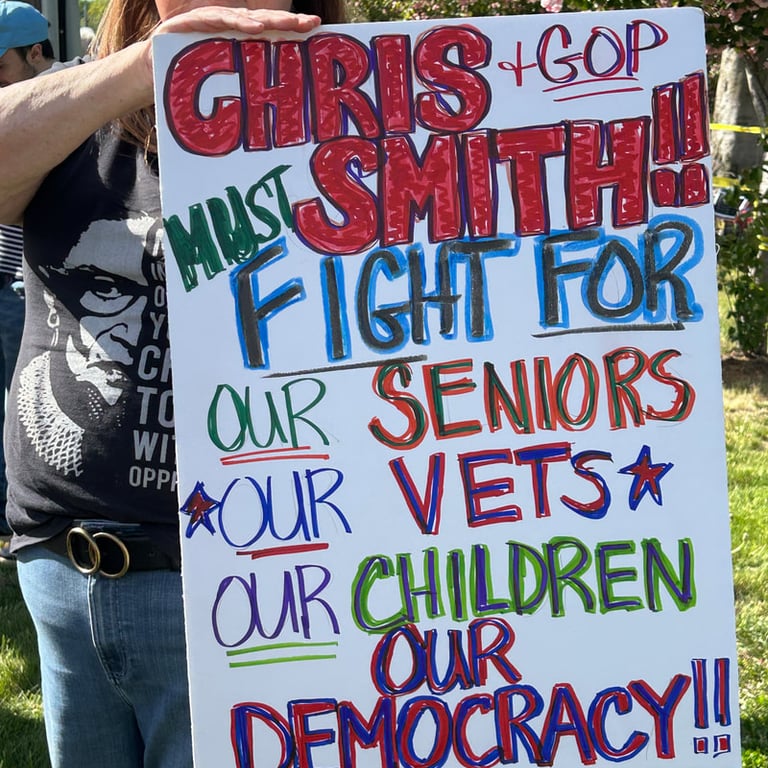 CHRIS + GOP
SMITH!!
MUST
FIGHT FOR
OUR SENIORS
OUR VETS
OUR CHILDREN
OUR
DEMOCRACY!!
TO
WI
OPP